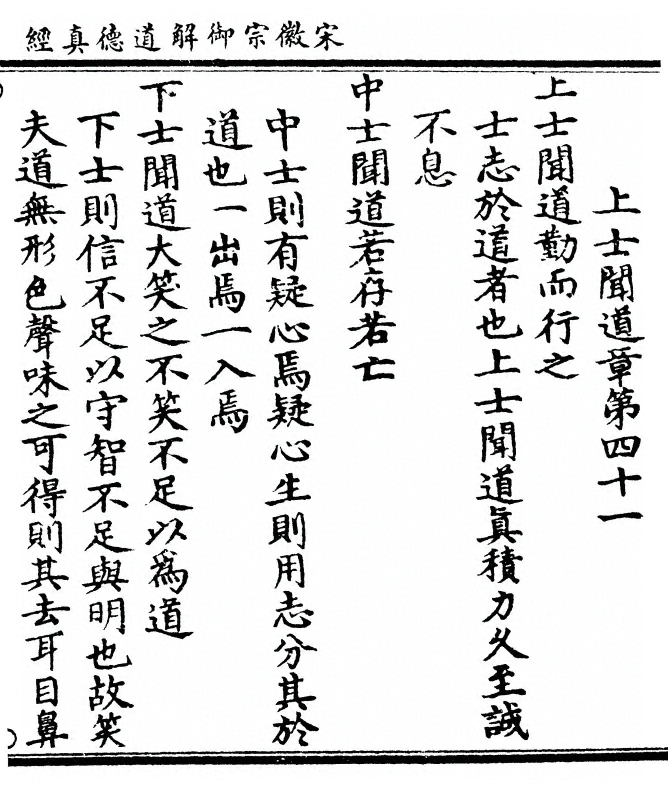 宋徽宗御解道德真經
上士聞道章第四十一
上士聞道勤而行之
士志於道者也上士聞道眞積力久至誠
不息
中士聞道若存若亡
中士則有疑心焉疑心生則用志分其於
道也一出焉一入焉
下士聞道大笑之不笑不足以爲道
下士則信不足以守智不足與明也故笑
夫道無形色聲味之可得則其去耳目鼻